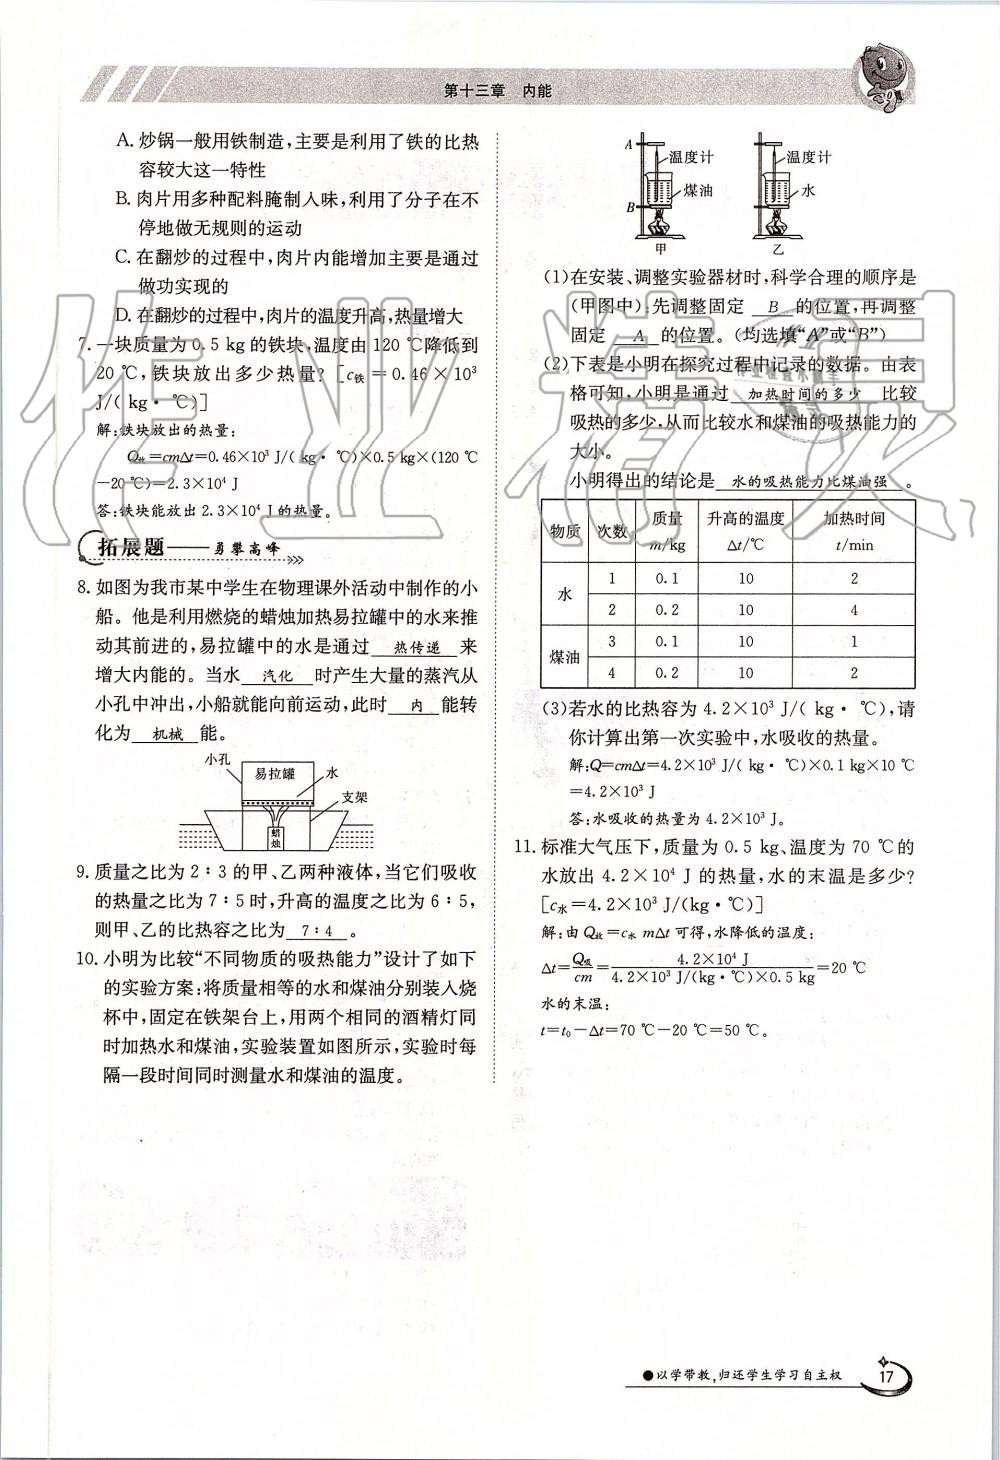 第十三章　内能
A. 炒锅一般用铁制造，主要是利用了铁的比热
容较大这一特性
B. 肉片用多种配料腌制入味，利用了分子在不
停地做无规则的运动
C. 在翻炒的过程中，肉片内能增加主要是通过
做功实现的
D. 在翻炒的过程中，肉片的温度升高，热量增大
7. 一块质量为 0.5 kg 的铁块，温度由 120 ℃降低到
20 ℃，铁块放出多少热量？［c铁＝0.46×10³
J/( kg· ℃)］
解：铁块放出的热量：
Q放＝cmΔt＝0.46×10³ J/( kg· ℃)×0.5 kg×(120 ℃
－20 ℃)＝2.3×10⁴ J
答：铁块能放出 2.3×10⁴ J 的热量。
拓展题——勇攀高峰
8. 如图为我市某中学生在物理课外活动中制作的小
船。他是利用燃烧的蜡烛加热易拉罐中的水来推
动其前进的，易拉罐中的水是通过 热传递 来
增大内能的。当水 汽化 时产生大量的蒸汽从
小孔中冲出，小船就能向前运动，此时 内 能转
化为 机械 能。
小孔
易拉罐
水
支架
蜡烛
9. 质量之比为 2∶3 的甲、乙两种液体，当它们吸收
的热量之比为 7∶5 时，升高的温度之比为 6∶5，
则甲、乙的比热容之比为 7∶4 。
10. 小明为比较“不同物质的吸热能力”设计了如下
的实验方案：将质量相等的水和煤油分别装入烧
杯中，固定在铁架台上，用两个相同的酒精灯同
时加热水和煤油，实验装置如图所示，实验时每
隔一段时间同时测量水和煤油的温度。
A
温度计
煤油
B
甲
温度计
水
乙
(1)在安装、调整实验器材时，科学合理的顺序是
(甲图中)：先调整固定 B 的位置，再调整
固定 A 的位置。(均选填“A”或“B”)
(2)下表是小明在探究过程中记录的数据。由表
格可知，小明是通过 加热时间的多少 比较
吸热的多少，从而比较水和煤油的吸热能力的
大小。
小明得出的结论是 水的吸热能力比煤油强 。
物质 次数 质量 m/kg 升高的温度 Δt/℃ 加热时间 t/min
水 1 0.1 10 2
2 0.2 10 4
煤油 3 0.1 10 1
4 0.2 10 2
(3)若水的比热容为 4.2×10³ J/( kg· ℃)，请
你计算出第一次实验中，水吸收的热量。
解：Q＝cmΔt＝4.2×10³ J/( kg· ℃)×0.1 kg×10 ℃
＝4.2×10³ J
答：水吸收的热量为 4.2×10³ J。
11. 标准大气压下，质量为 0.5 kg、温度为 70 ℃的
水放出 4.2×10⁴ J 的热量，水的末温是多少？
［c水＝4.2×10³ J/(kg·℃)］
解：由 Q放＝c水 mΔt 可得，水降低的温度：
Δt＝Q吸/cm＝4.2×10⁴ J/4.2×10³ J/(kg·℃)×0.5 kg＝20 ℃
水的末温：
t＝t₀－Δt＝70 ℃－20 ℃＝50 ℃。
●以学带教，归还学生学习自主权
17
作业精灵